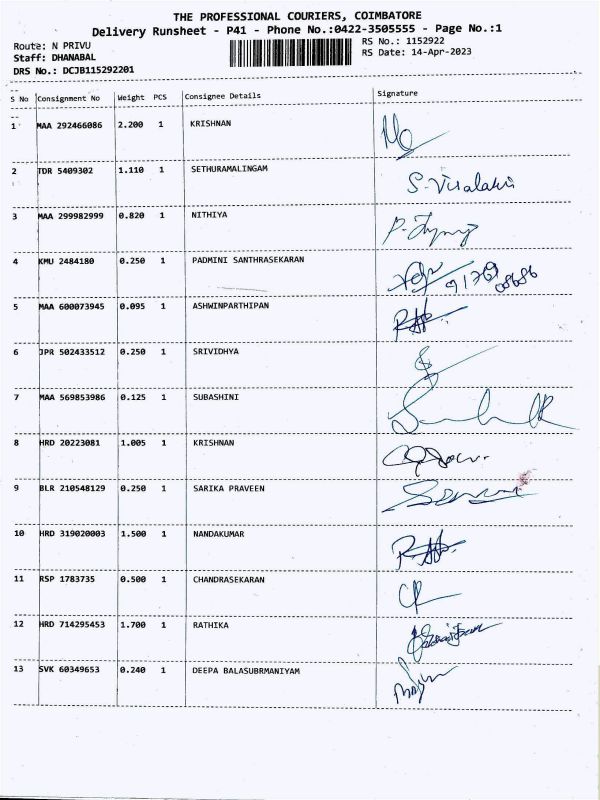 THE PROFESSIONAL COURIERS, COIMBATORE
Delivery Runsheet - P41 - Phone No.:0422-3505555 - Page No.:1
Route: N PRIVU RS No.: 1152922
Staff: DHANABAL RS Date: 14-Apr-2023
DRS No.: DCJB115292201
S No Consignment No Weight PCS Consignee Details Signature
1 MAA 292466086 2.200 1 KRISHNAN
2 TDR 5409302 1.110 1 SETHURAMALINGAM S. Visalakshi
3 MAA 299982999 0.820 1 NITHIYA
4 KMU 2484180 0.250 1 PADMINI SANTHRASEKARAN
5 MAA 600073945 0.095 1 ASHWINPARTHIPAN
6 JPR 502433512 0.250 1 SRIVIDHYA
7 MAA 569853986 0.125 1 SUBASHINI
8 HRD 20223081 1.005 1 KRISHNAN
9 BLR 210548129 0.250 1 SARIKA PRAVEEN
10 HRD 319020003 1.500 1 NANDAKUMAR
11 RSP 1783735 0.500 1 CHANDRASEKARAN
12 HRD 714295453 1.700 1 RATHIKA
13 SVK 60349653 0.240 1 DEEPA BALASUBRMANIYAM